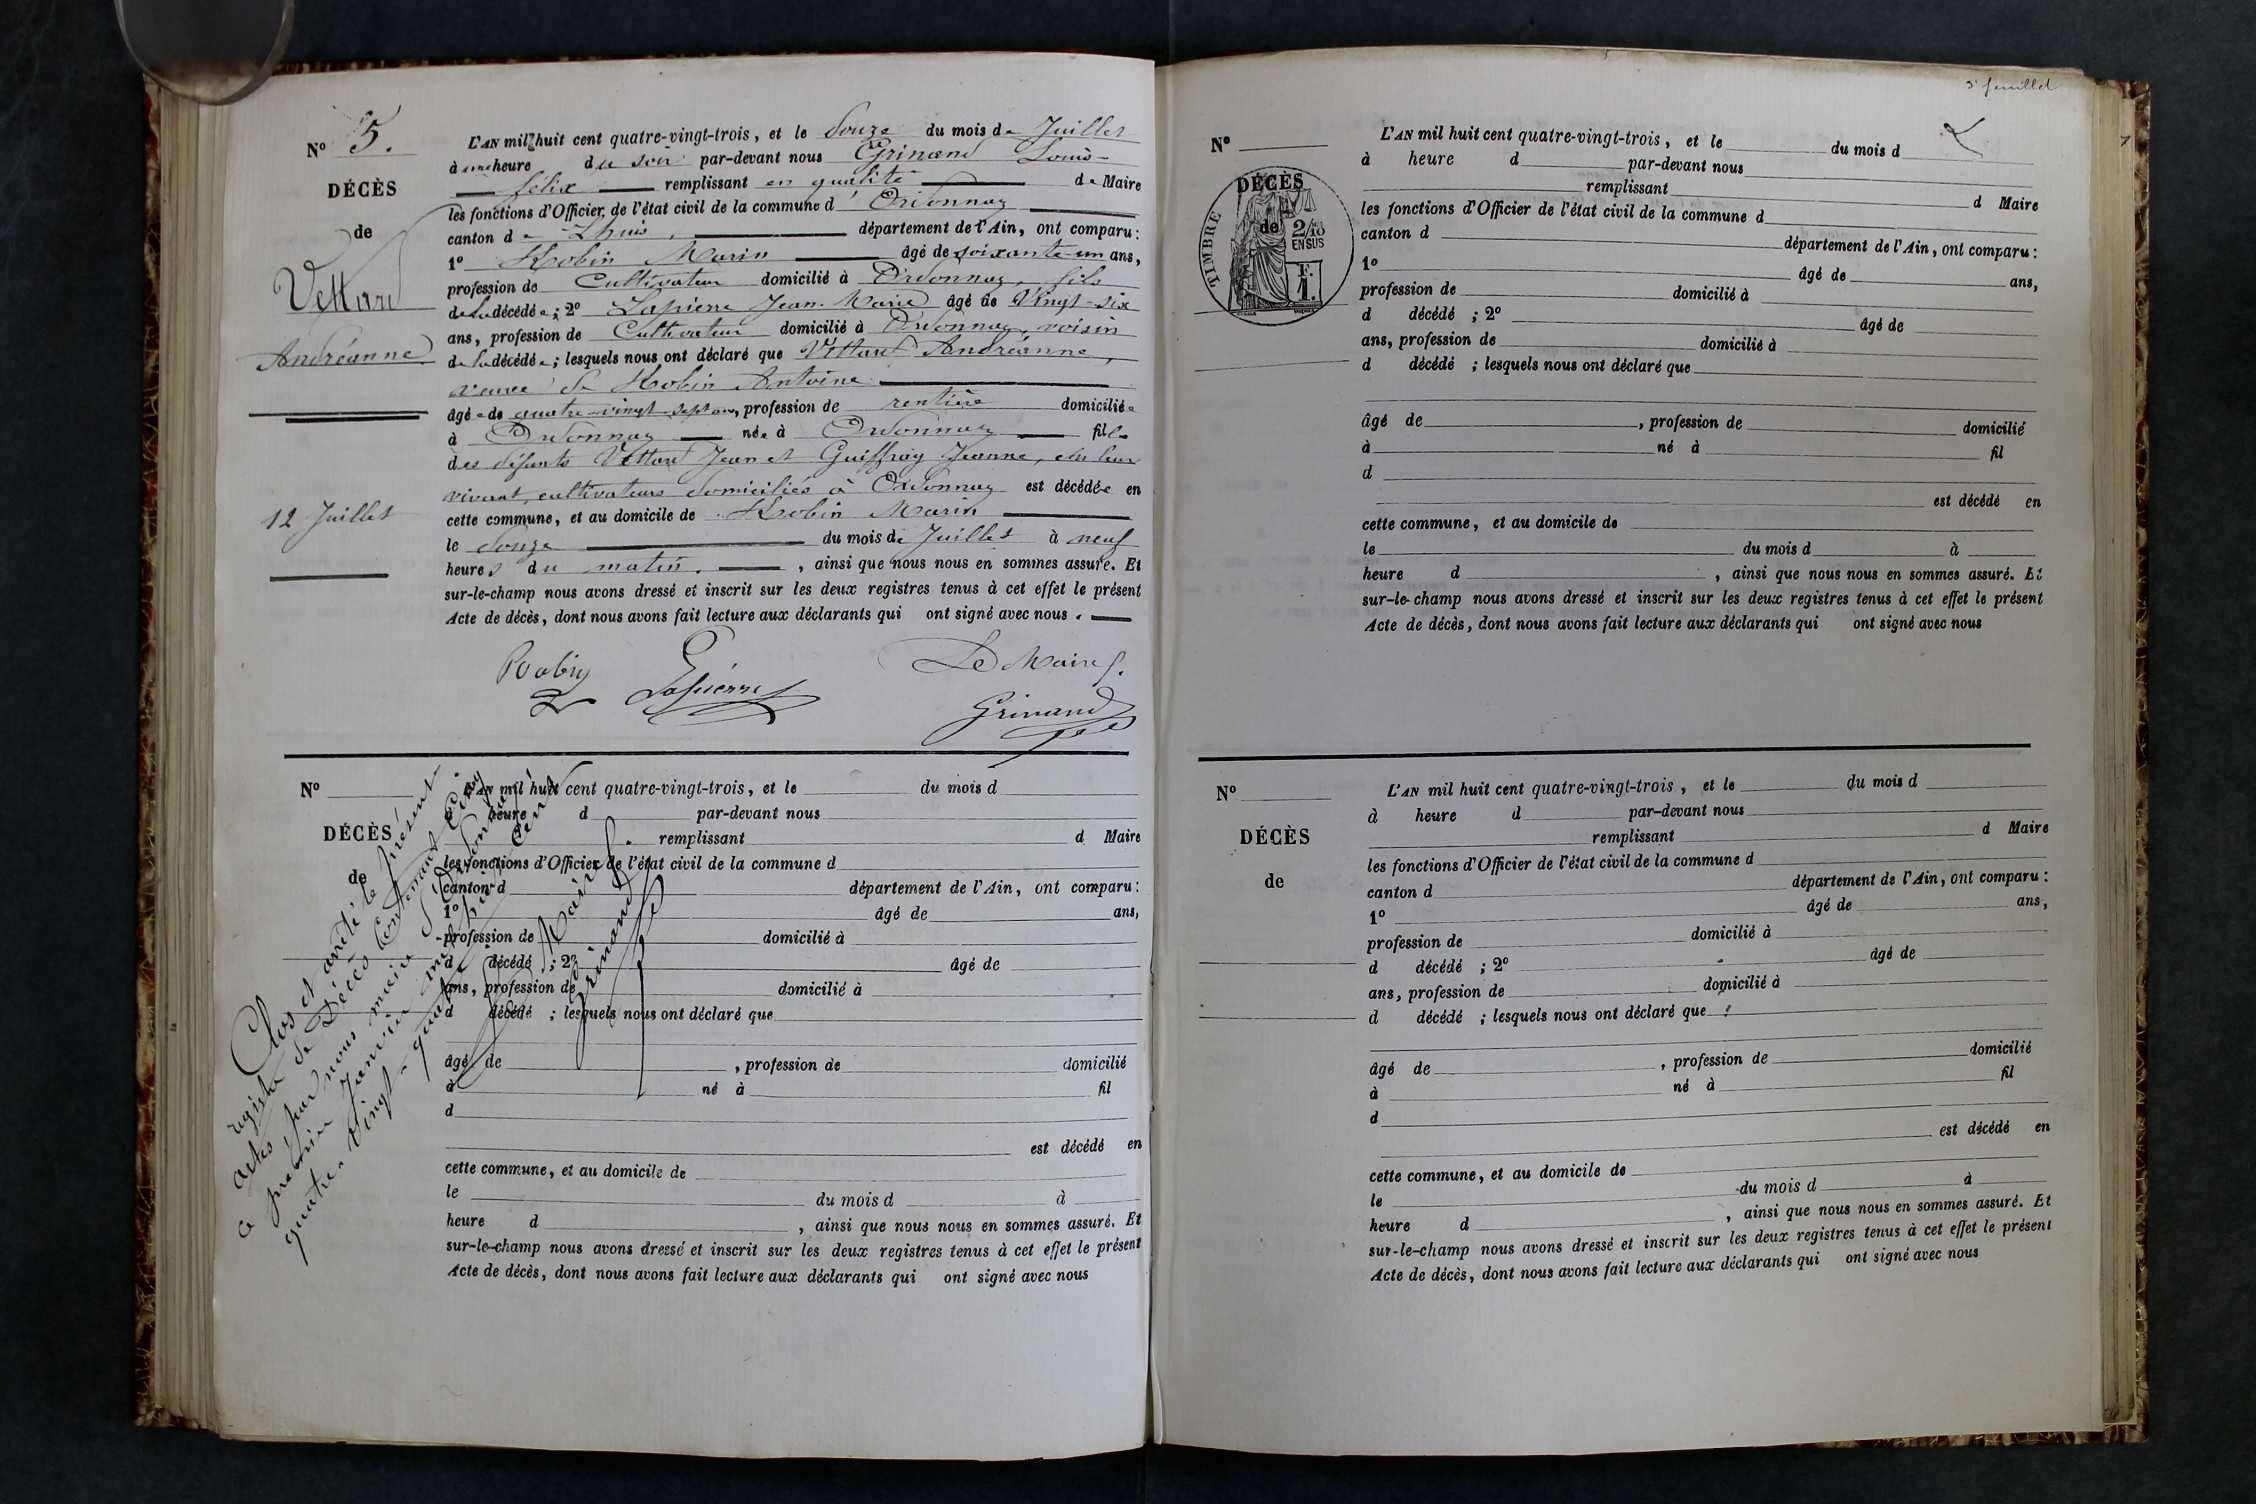 N° 5.
DÉCÈS
de
Vettard
Andréanne
12 Juillet
L'AN mil huit cent quatre-vingt-trois, et le Douze du mois de Juillet
à une heure du soir par-devant nous Grinand Louis-
félix remplissant en qualité de Maire
les fonctions d'Officier de l'état civil de la commune d'Ordonnaz
canton de Lhuis, département de l'Ain, ont comparu:
1° Robin Marin âgé de soixante-un ans,
profession de Cultivateur domicilié à Ordonnaz, fils
de la décédée; 2° Lapierre Jean-Marie âgé de Vingt-six
ans, profession de Cultivateur domicilié à Ordonnaz, voisin
de la décédée; lesquels nous ont déclaré que Vettard Andréanne,
veuve de Robin Antoine
âgée de quatre-vingt-sept ans, profession de rentière domiciliée
à Ordonnaz née à Ordonnaz fille
des défunts Vettard Jean et Guiffray Jeanne, de leur
vivant, cultivateurs domiciliés à Ordonnaz est décédée en
cette commune, et au domicile de Robin Marin
le douze du mois de Juillet à neuf
heures du matin, ainsi que nous nous en sommes assuré. Et
sur-le-champ nous avons dressé et inscrit sur les deux registres tenus à cet effet le présent
Acte de décès, dont nous avons fait lecture aux déclarants qui ont signé avec nous.
Lapierre Le Maire
Grinand
N°
DÉCÈS
de
L'AN mil huit cent quatre-vingt-trois, et le du mois d
à heure d par-devant nous
remplissant d Maire
les fonctions d'Officier de l'état civil de la commune d
canton d département de l'Ain, ont comparu:
1° âgé de ans,
profession de domicilié à
d décédé ; 2° âgé de
ans, profession de domicilié à
d décédé ; lesquels nous ont déclaré que
âgé de , profession de domicilié
à né à fil
d
est décédé en
cette commune, et au domicile de
le du mois d à
heure d , ainsi que nous nous en sommes assuré. Et
sur-le-champ nous avons dressé et inscrit sur les deux registres tenus à cet effet le présent
Acte de décès, dont nous avons fait lecture aux déclarants qui ont signé avec nous
Clos et arrêté le présent
registre de Décès Contenant Cinq
actes par nous maire d'Ordonnaz
a premier Janvier mil huit Cent
quatre-Vingt-quatre
Le Maire
Grinand
3e feuillet
N°
DÉCÈS
de
TIMBRE
2/10
EN SUS
F.
1.
L'AN mil huit cent quatre-vingt-trois, et le du mois d
à heure d par-devant nous
remplissant d Maire
les fonctions d'Officier de l'état civil de la commune d
canton d département de l'Ain, ont comparu:
1° âgé de ans,
profession de domicilié à
d décédé ; 2° âgé de
ans, profession de domicilié à
d décédé ; lesquels nous ont déclaré que
âgé de , profession de domicilié
à né à fil
d
est décédé en
cette commune, et au domicile de
le du mois d à
heure d , ainsi que nous nous en sommes assuré. Et
sur-le-champ nous avons dressé et inscrit sur les deux registres tenus à cet effet le présent
Acte de décès, dont nous avons fait lecture aux déclarants qui ont signé avec nous
N°
DÉCÈS
de
L'AN mil huit cent quatre-vingt-trois, et le du mois d
à heure d par-devant nous
remplissant d Maire
les fonctions d'Officier de l'état civil de la commune d
canton d département de l'Ain, ont comparu:
1° âgé de ans,
profession de domicilié à
d décédé ; 2° âgé de
ans, profession de domicilié à
d décédé ; lesquels nous ont déclaré que
âgé de , profession de domicilié
à né à fil
d
est décédé en
cette commune, et au domicile de
le du mois d à
heure d , ainsi que nous nous en sommes assuré. Et
sur-le-champ nous avons dressé et inscrit sur les deux registres tenus à cet effet le présent
Acte de décès, dont nous avons fait lecture aux déclarants qui ont signé avec nous